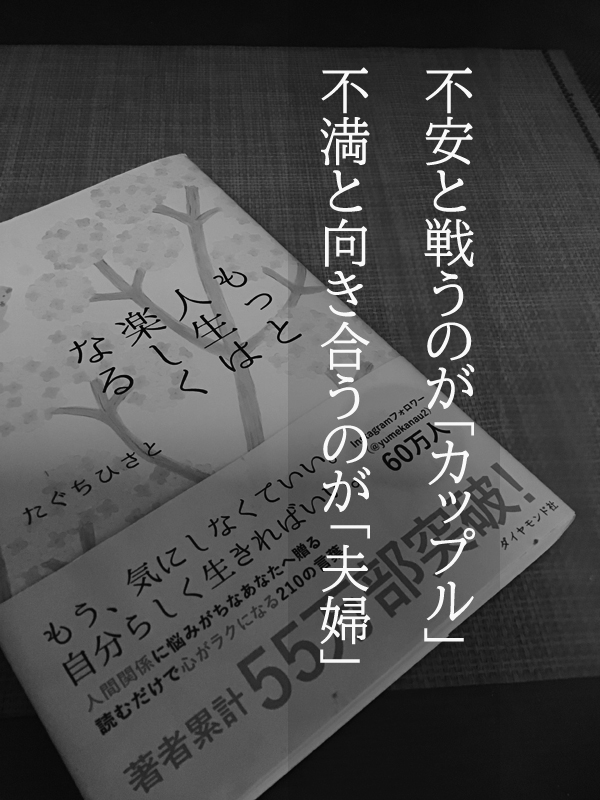 不安と戦うのが「カップル」
不満と向き合うのが「夫婦」
もっと
人生は
楽しく
なる
たぐちひさと
Instagramフォロワー
(@yumekanau2)
60万人
もう、気にしなくていい。
自分らしく生きればいい。
人間関係に悩みがちなあなたへ贈る
読むだけで心がラクになる210の言葉
著者累計55万部突破!
ダイヤモンド社